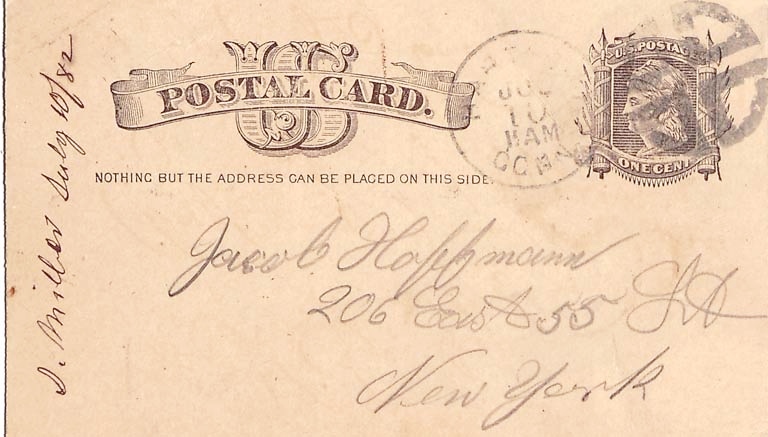 D. Miller July 10/82
US
POSTAL CARD.
NOTHING BUT THE ADDRESS CAN BE PLACED ON THIS SIDE.
JUL
10
11AM
CONN
U.S. POSTAL
ONE CENT
Jacob Hoffmann
206 East 55 St
New York